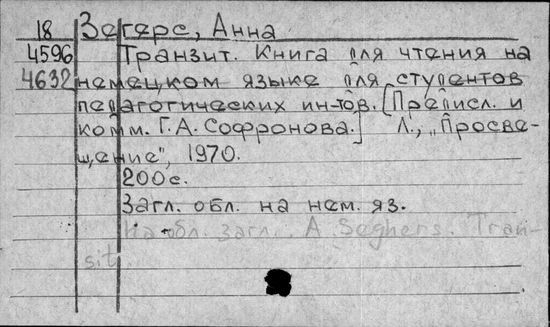 18 Зегерс, Анна
4596 Транзит. Книга для чтения на
4632 немецком языке для студентов
педагогических ин-тов. [Предисл. и
комм. Г.А. Софронова.] Л., „Просве-
щение", 1970.
200с.
Загл. обл. на нем. яз.
На обл. загл.: A Seghers. Tran-
sit